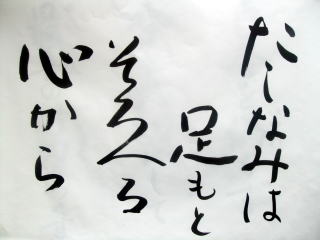 たしなみは
足もと
そろへる
心から